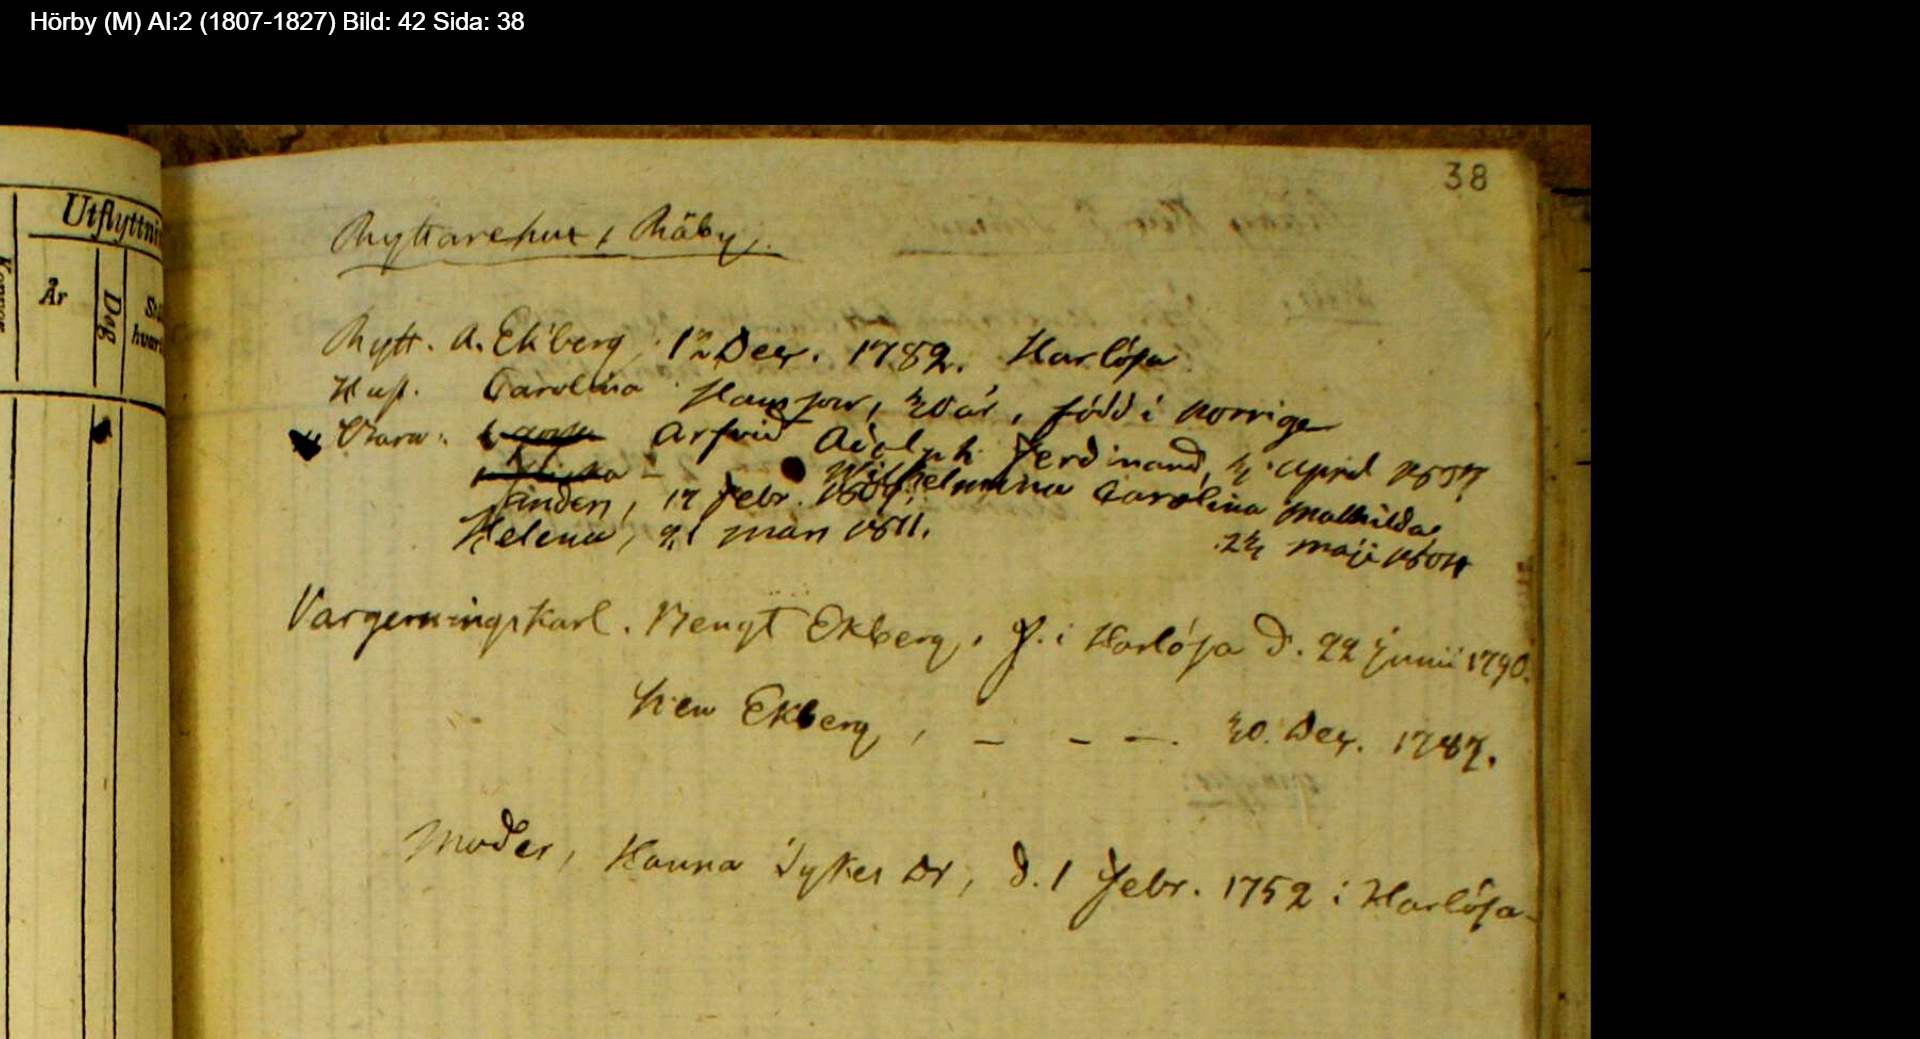 Hörby (M) AI:2 (1807-1827) Bild: 42 Sida: 38
38
Utflyttni
År
Dag
hvar
Ryttarehus, Råby.
Rytt. A. Ekberg, 12 Dec. 1782. Harlösa
Hust. Carolina Hansson, 30 år, född i Norrige
Barn: Arfvid Adolph Ferdinand, 3 April 1807
Wilhelmina Carolina Mathilda
23 Maji 1804
17 Febr. 1809
Helena, 21 Mars 1811.
Vargerningskarl. Bengt Ekberg. f. i Harlösa d. 22 Junii 1790.
Sven Ekberg, – – – . 30. Dec. 1787.
Moder, Hanna Tykes Dr, d. 1 Febr. 1752 i Harlösa